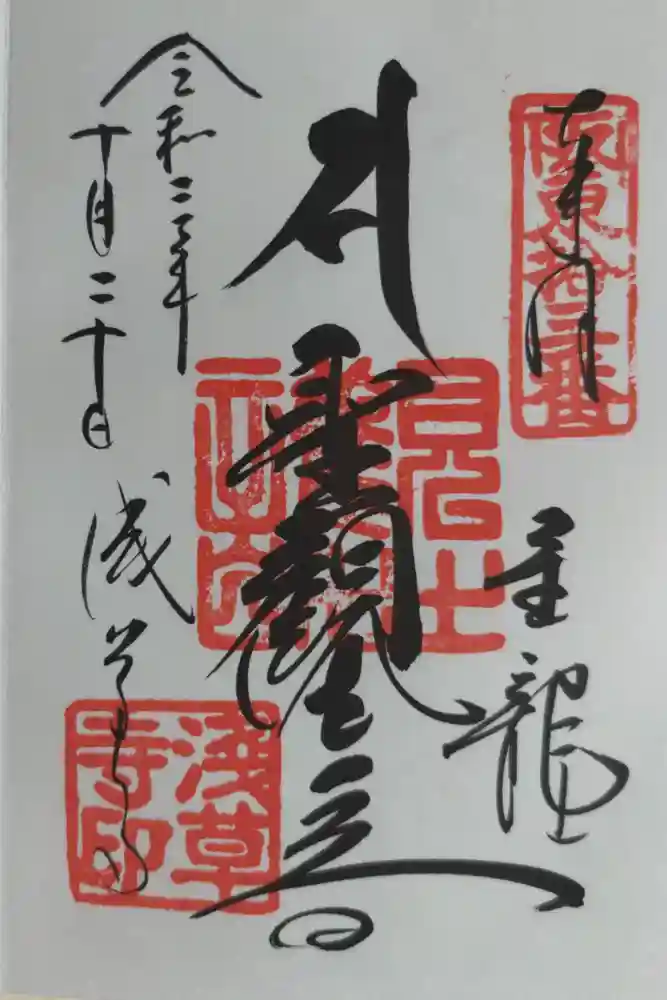 奉拝
阪東拾三番
金龍
聖観世音
令和二年
十月二十日
浅草寺
淺草
寺印